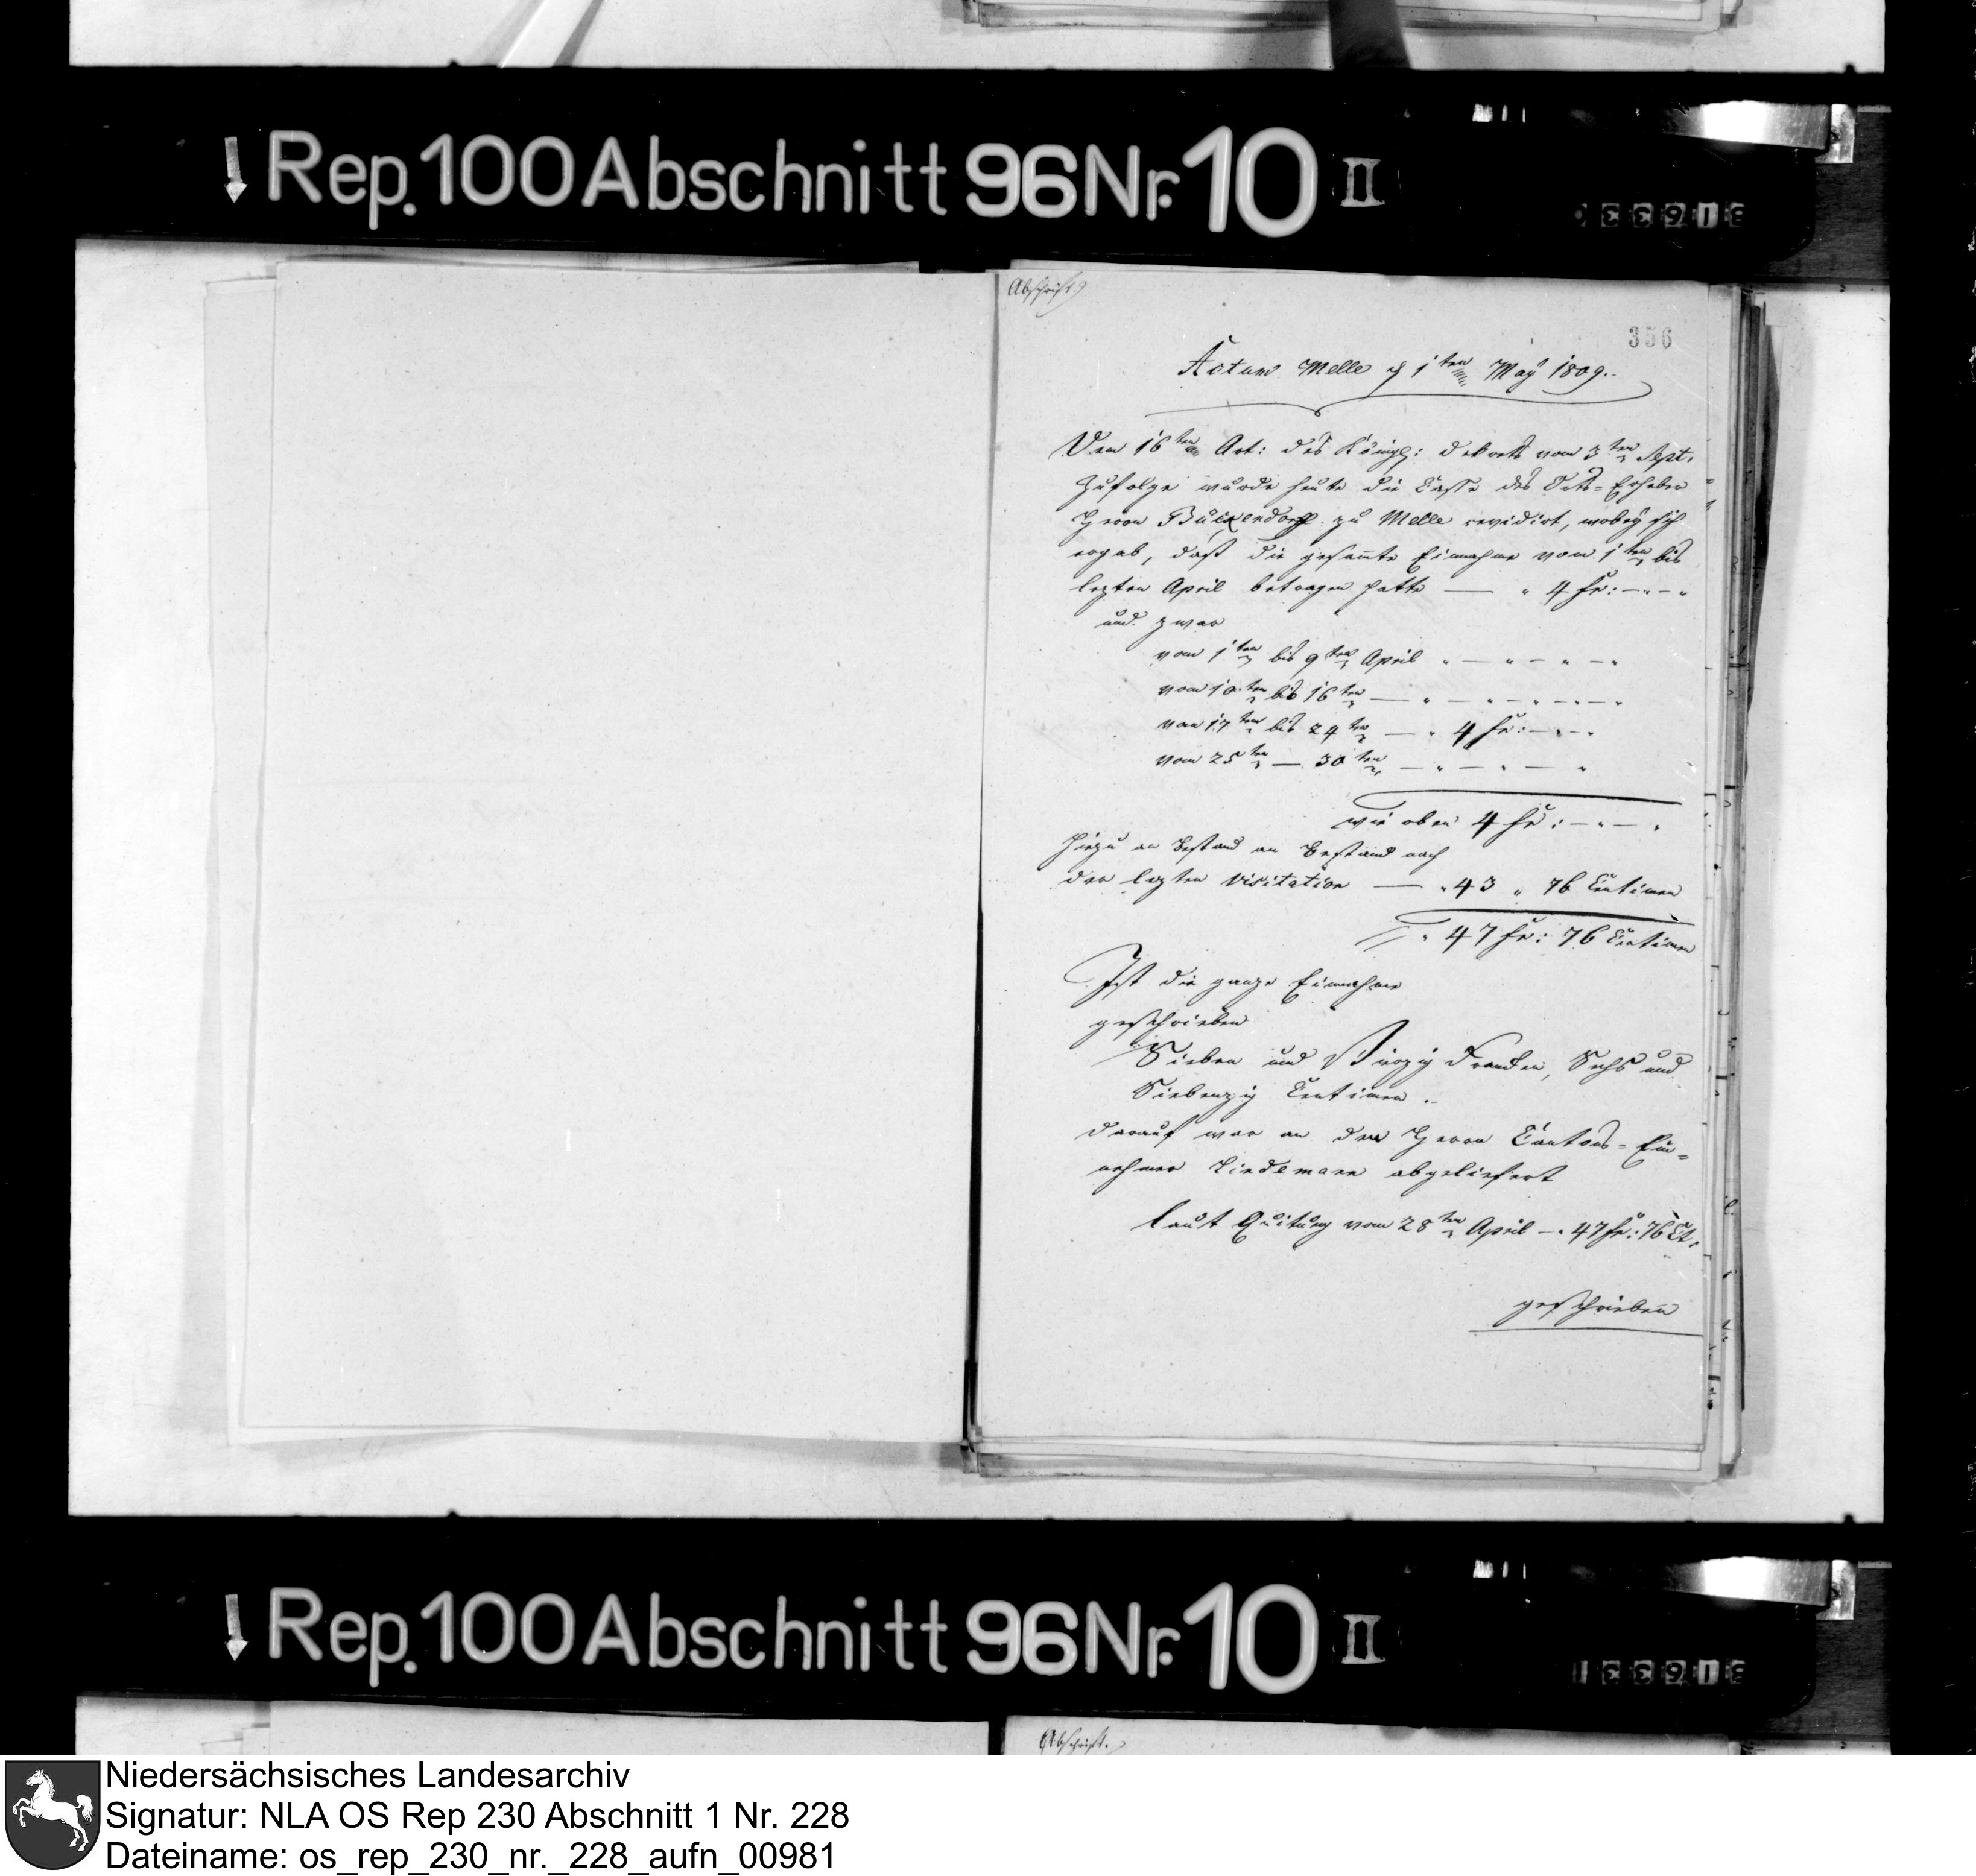 Rep. 100 Abschnitt 96 Nr. 10 II
Abschrift
356
Actum Melle d 1ten May 1809.
Dem 16ten Art: des Königl: Dekrets vom 3ten Sept.
Zufolge wurde heute die Casse des Orts-Erhebers
Herrn zu Melle revidirt, wobey sich
ergab, daß die gesam̄te Einnahme vom 1ten bis
lezten April betragen hatte — " 4 fr: — " — "
und zwar
vom 1ten bis 9ten April " — " — " — "
vom 10ten bis 16ten — " — " — " — " — "
vom 17ten bis 24ten — " 4 fr: — " — "
vom 25ten — 30ten — " — " — "
wie oben 4 fr: — " — "
Hiezu an Bestand an Bestand nach
der lezten Visitation — " 43 " 76 Centimen
" 47 fr: 76 Centimen
Ist die ganze Einnahme
geschrieben
Sieben und Vierzig Franken, Sechs und
Siebenzig Centimen.
Darauf war an den Herrn Cantons-Ein-
nehmer Lindemann abgeliefert
laut Quitung vom 28ten April — " 47 fr: 76 Ct.
geschrieben
Rep. 100 Abschnitt 96 Nr. 10 II
Abschrift.
Niedersächsisches Landesarchiv
Signatur: NLA OS Rep 230 Abschnitt 1 Nr. 228
Dateiname: os_rep_230_nr._228_aufn_00981